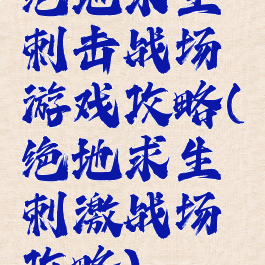 绝地求生
刺击战场
游戏攻略(
绝地求生
刺激战场
攻略)